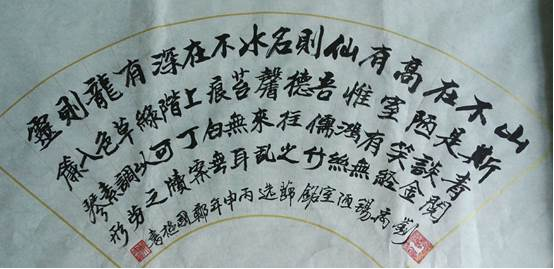 山不在高有仙則名水不在深有龍則靈
斯是陋室惟吾德馨苔痕上階綠草色入簾
青談笑有鴻儒往來無白丁可以調素琴
閱金經無絲竹之亂耳無案牘之勞形
劉禹錫陋室銘節選丙申年鄭國書